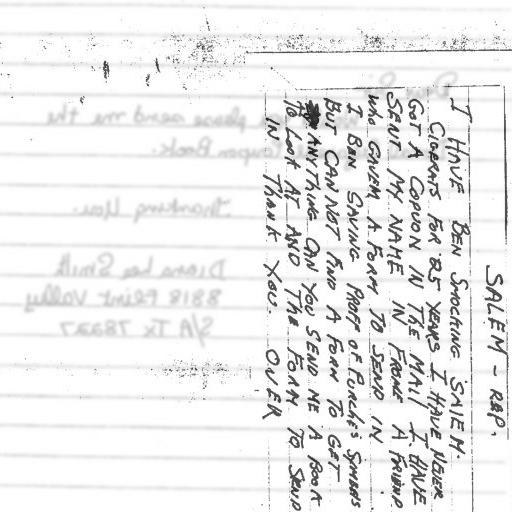 SALEM - REP.
I HAVE BEN SMOCKING SALEM.
CIGERATS FOR 25 YEARS I HAVE NEVER
GOT A COPUON IN THE MAIL I HAVE
SENT MY NAME IN FROME A FRIEND
WHO GAVEM A FORM TO SEND IN
I BEN SAVING PROFF OF PURCHE'S SYMBA'S
BUT CAN NOT FIND A FORM TO GET
ANYTHING CAN YOU SEND ME A BOOK
TO LOOK AT AND THE FORM TO SEND
IN THANK YOU. OVER
please send me the
Coupon Book.
Thanking you.
Diana Lee Smith
8818 Flint Valley
S/A Tx 78227